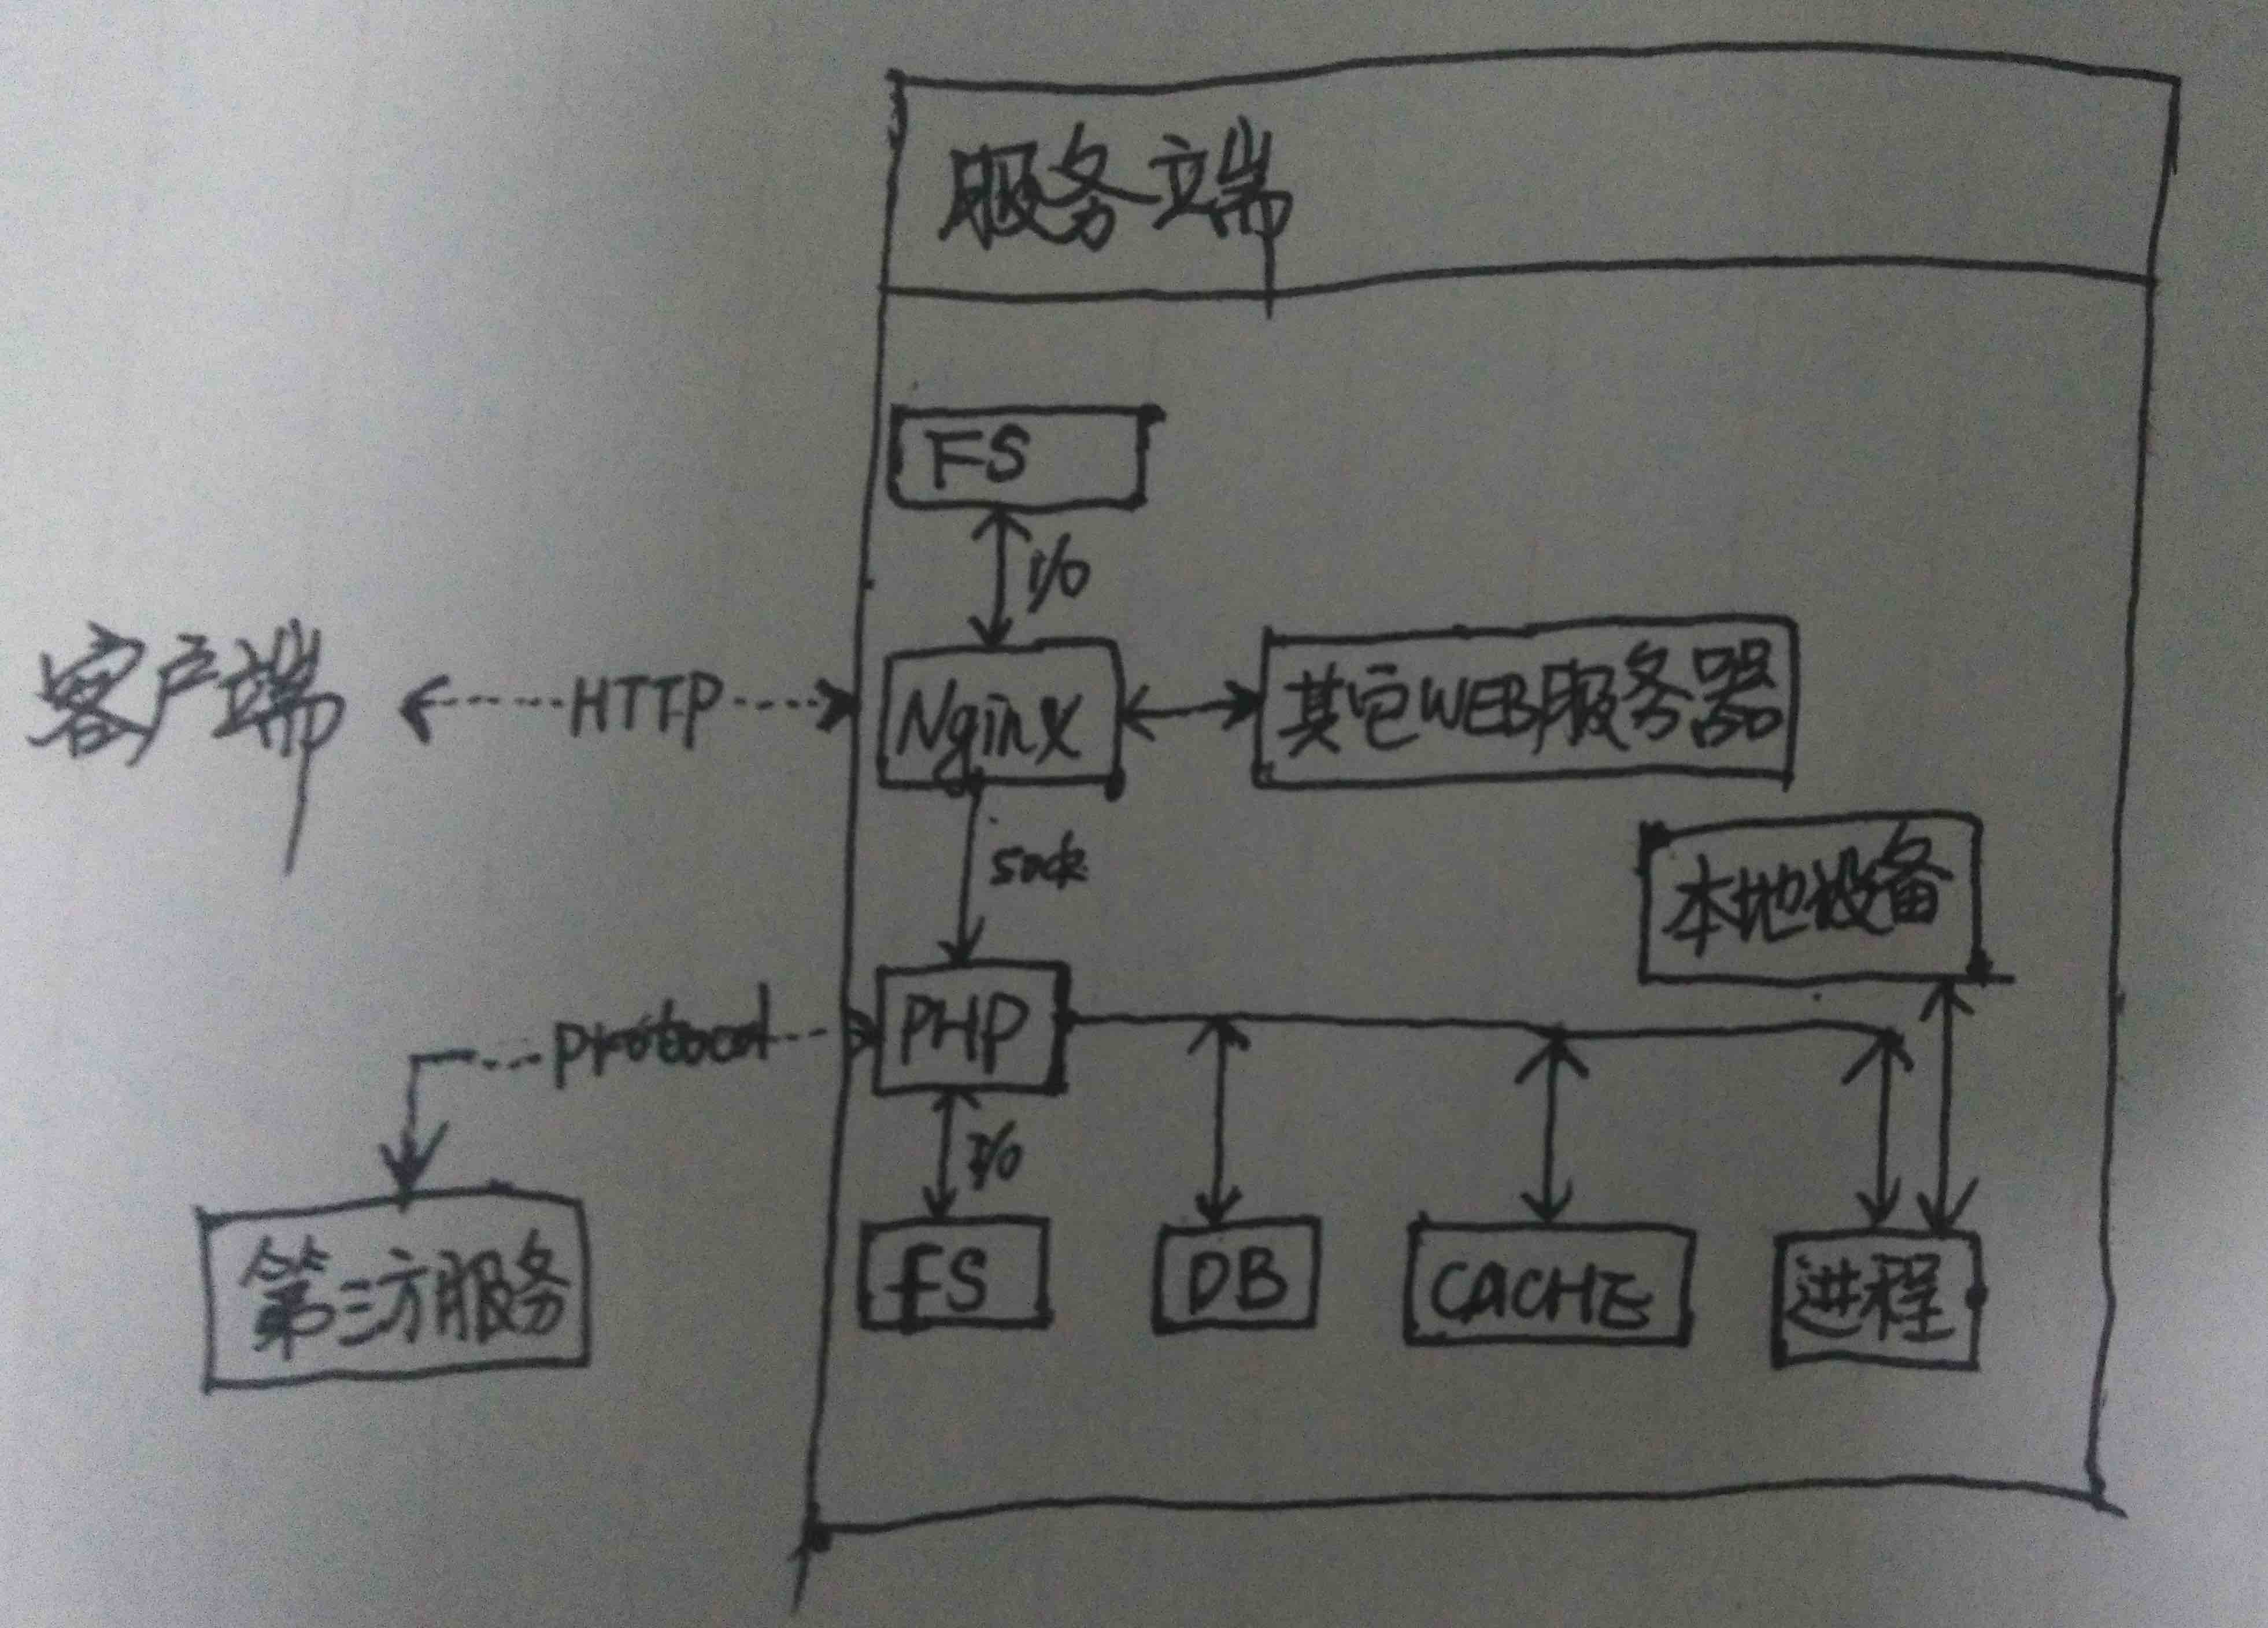 服务端
FS
I/O
客户端
HTTP
Nginx
其它WEB服务器
sock
本地设备
protocol
PHP
I/O
第三方服务
FS
DB
CACHE
进程